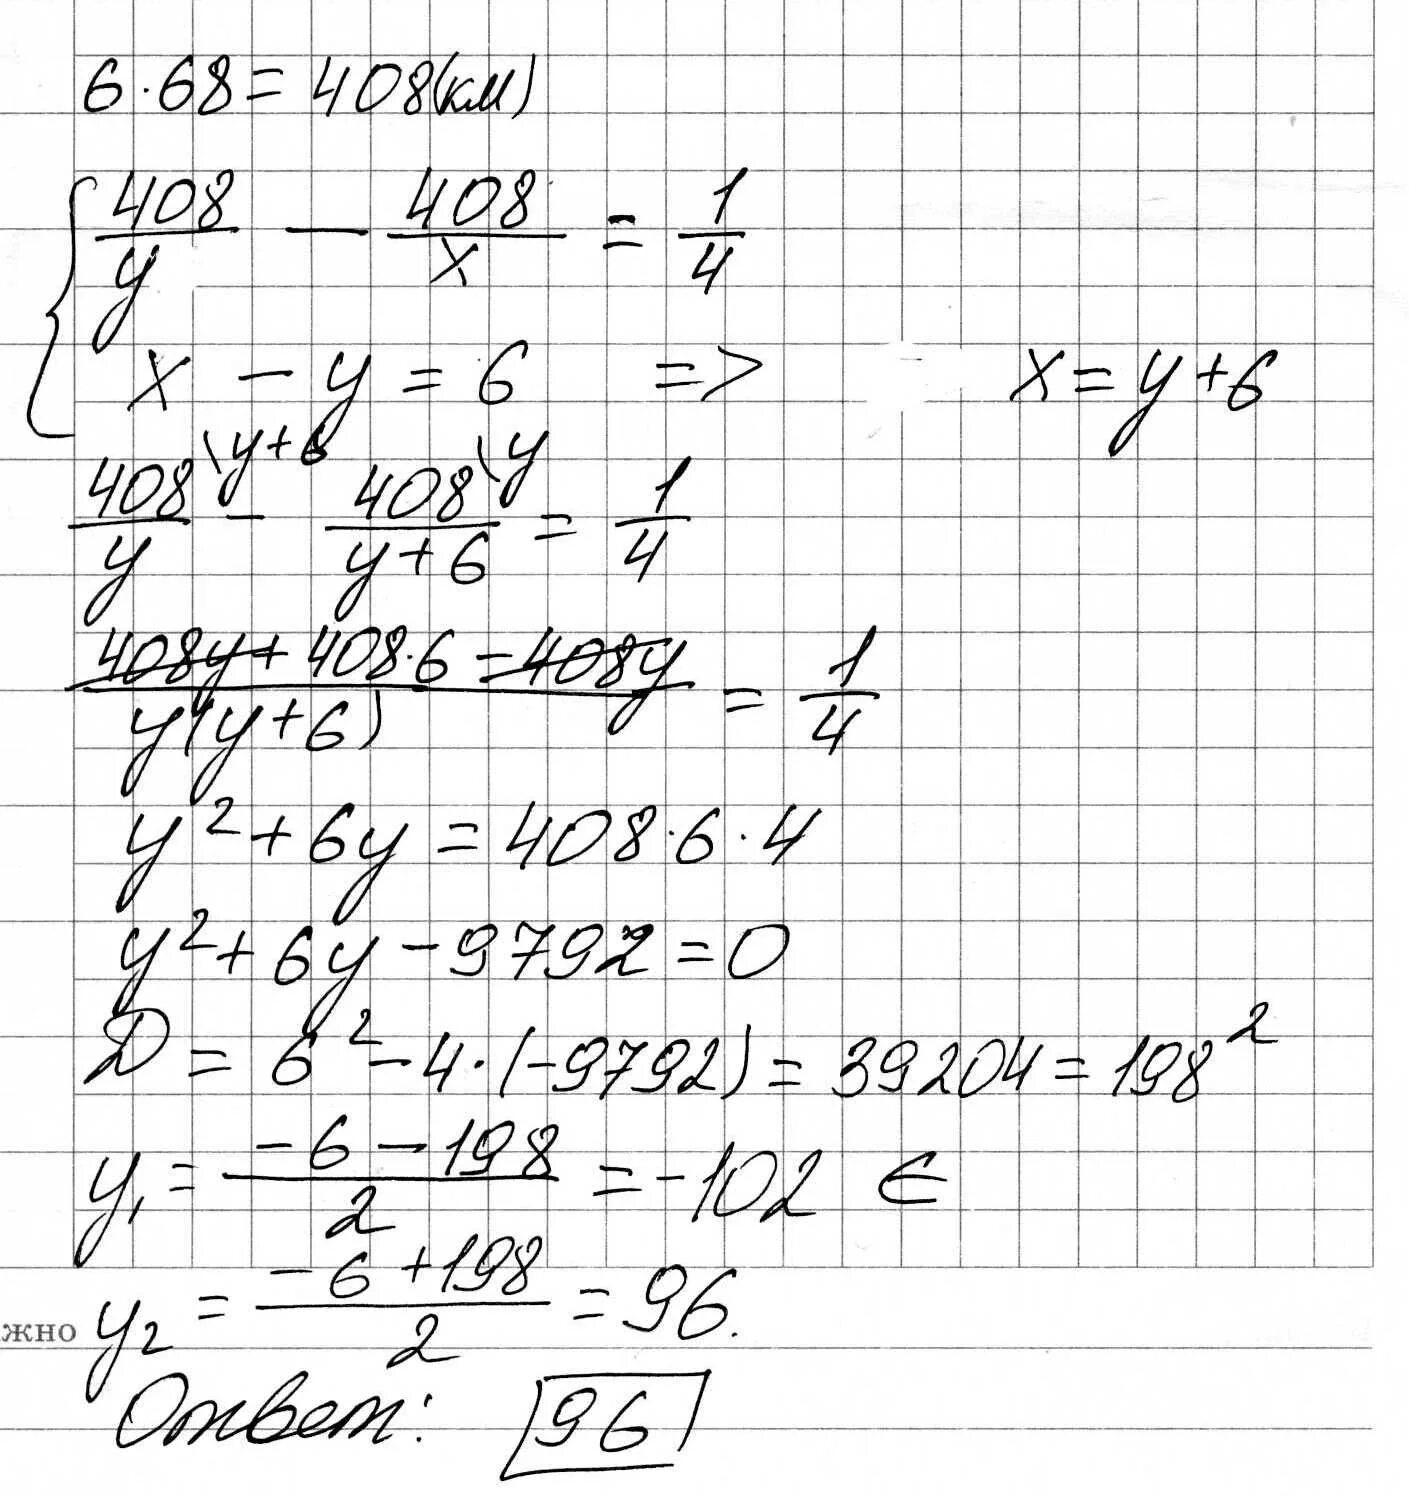 6·68 = 408(км)
{ 408/y — 408/x = 1/4
x - y = 6 => x = y+6
408\y+6/y - 408\y/y+6 = 1/4
408y + 408·6 - 408y/y(y+6) = 1/4
y² + 6y = 408·6·4
y² + 6y - 9792 = 0
D = 6² - 4·(-9792) = 39204 = 198²
y₁ = -6 - 198/2 = -102 ∈
y₂ = -6 + 198/2 = 96.
жно
Ответ: 96